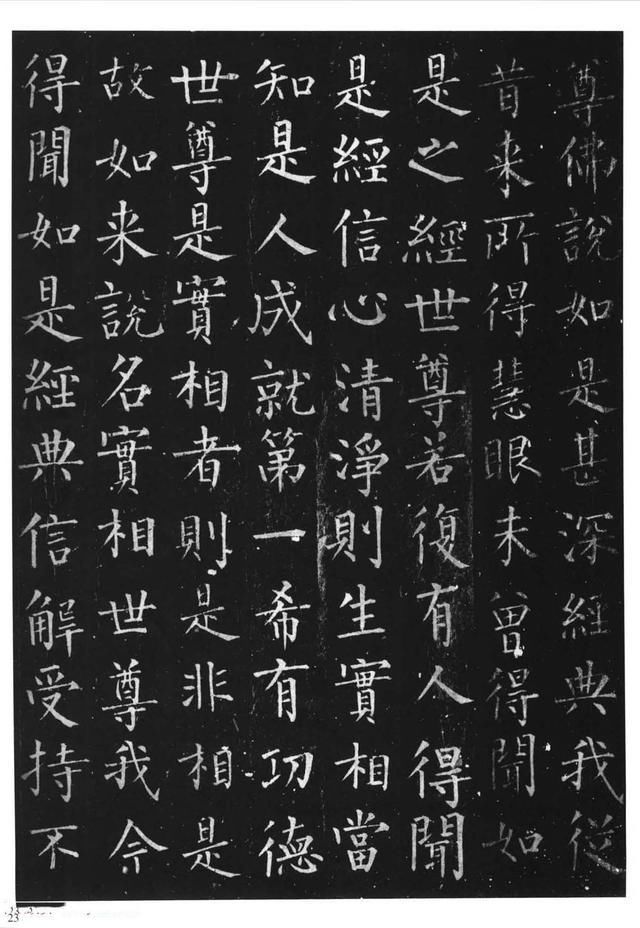 尊佛說如是甚深經典我從
昔来所得慧眼未曽得聞如
是之經世尊若復有人得聞
是經信心清淨則生實相當
知是人成就第一希有功德
世尊是實相者則是非相是
故如来說名實相世尊我今
得聞如是經典信解受持不
23